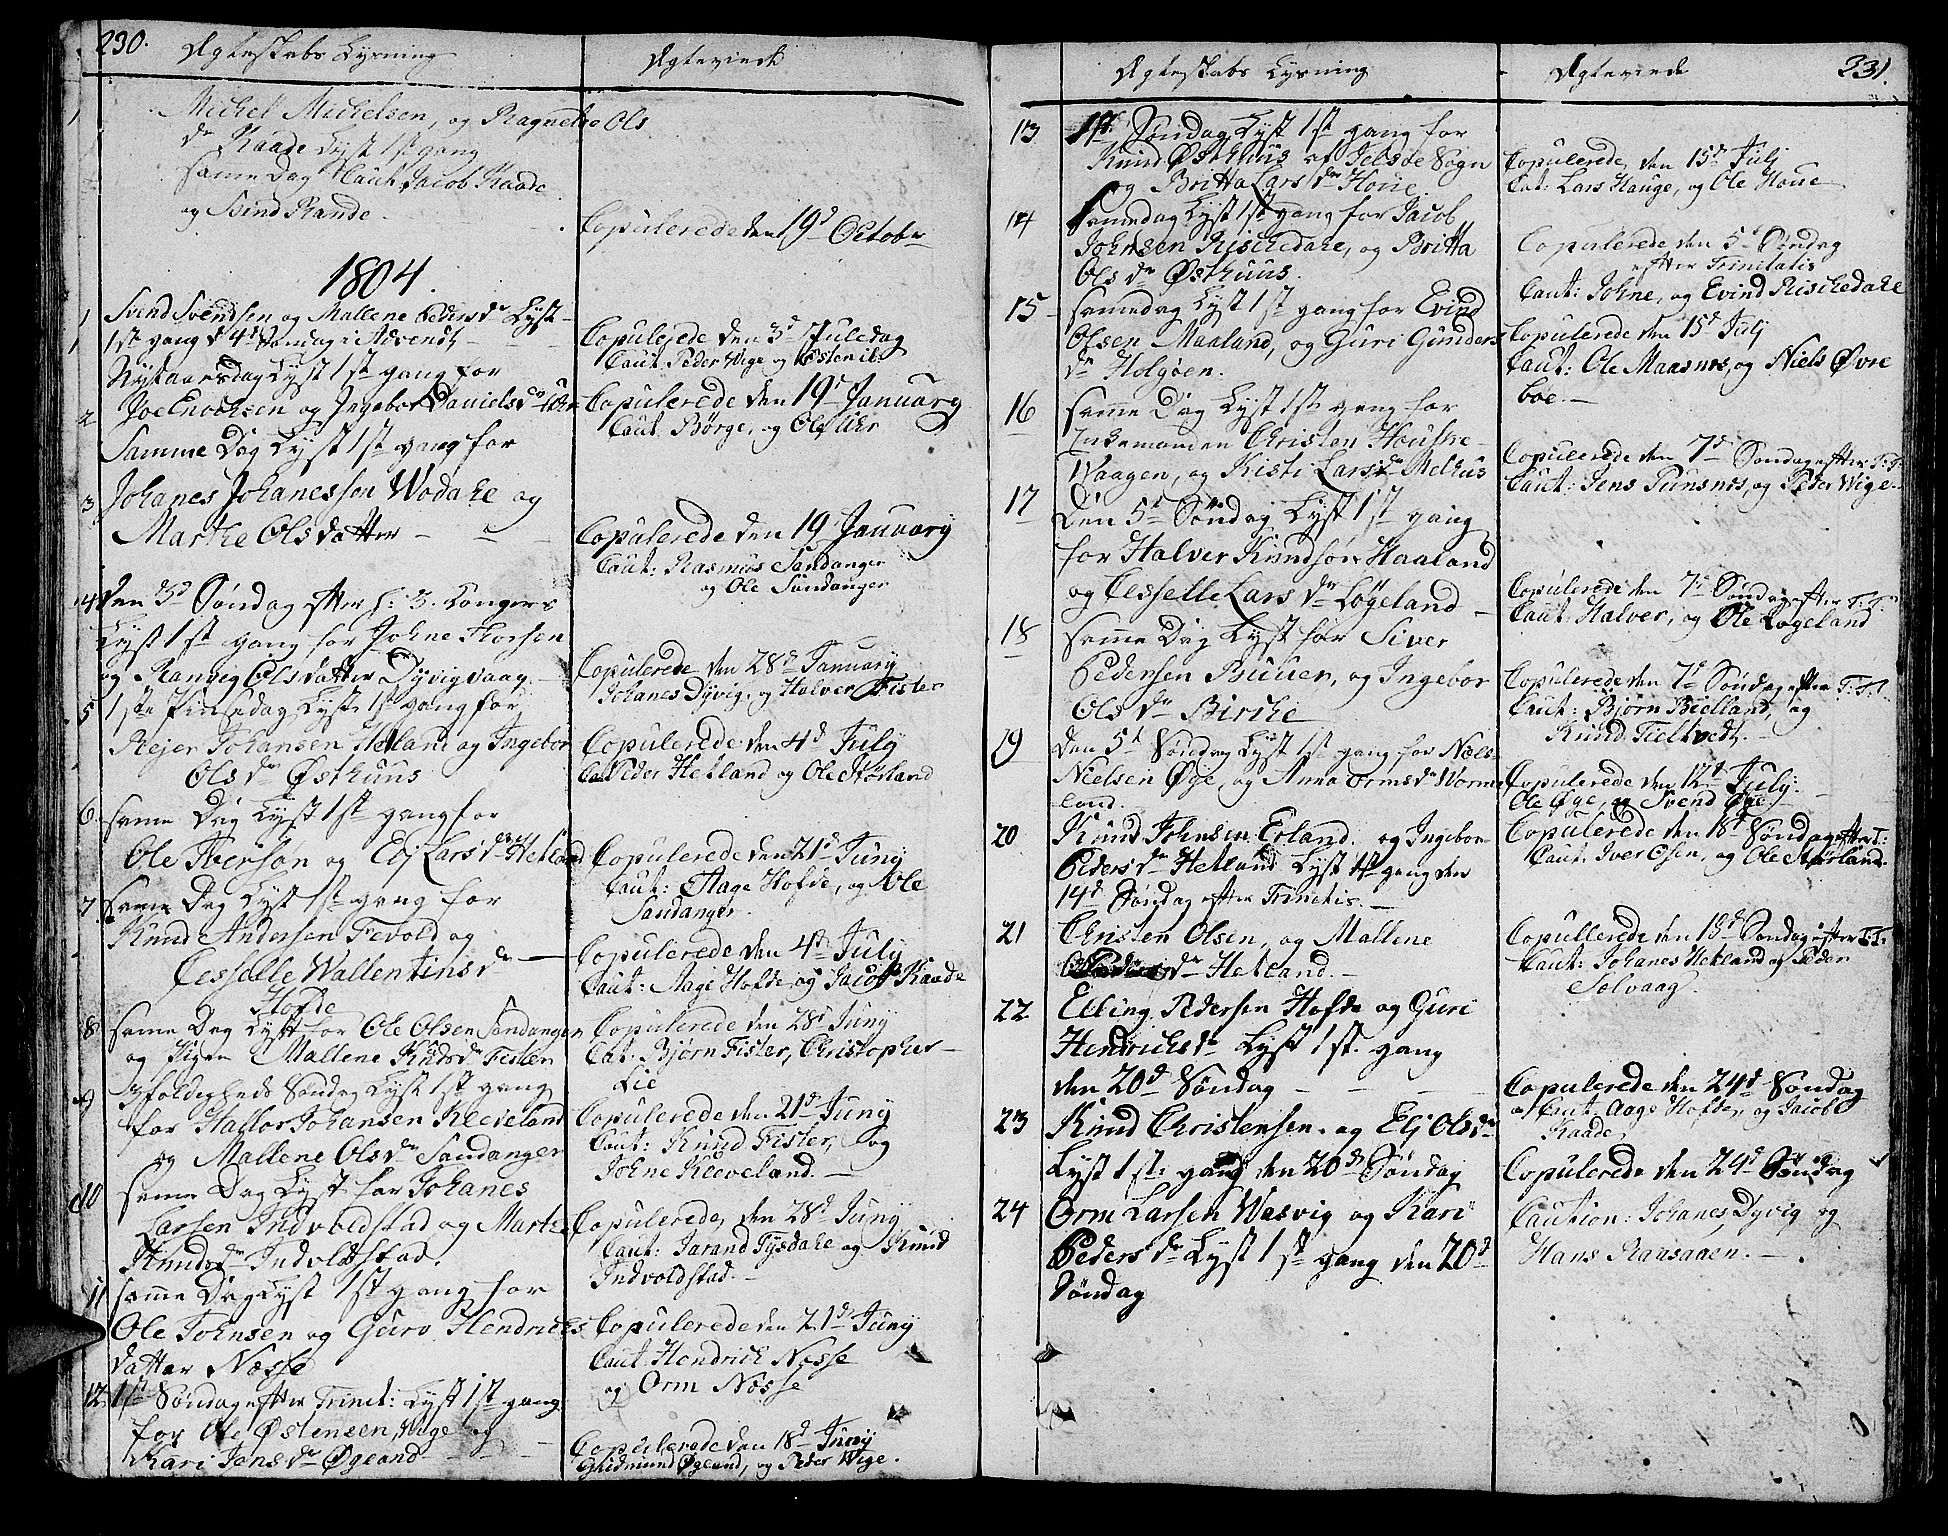 230.
Ægteskabs Lysning
Ægteviede
Michel Michelsen, og Ragnetha Ols
dr Kaade Lyst 1st gang
samme Dag Caut Jacob Kaade
og Svend Rande.
Copulerede den 19d October
1804.
1 Svend Svendsen og Mallene Peders dr Lyst
1st gang d 4d Søndag i Advendt
Copulerede den 3d Juledag
Caut. Peder Wige og
Nytaarsdag Lyst 1st gang for
2 Joe Enochsen og Ingebor Daniels dr
Copulerede den 19d January
Caut. Børge, og Ole
Samme Dag Lyst 1st gang for
3 Johanes Johanessen Wodahe og
Marthe Olsdatter
Copulerede den 19 January
Caut: Rasmus Sandanger
og Ole Sandanger
4 den 3d Søndag efter h: 3. Konger
Lyst 1st gang for Johne Thorsen
og Ranvig Olsdatter Dyvigvaag
Copulerede den 28d January
Johanes Dyvig, og Halver Fister
5 1ste Pinsedag Lyst 1st gang for
Rejer Johansen Hetland og Ingebor
Ols dr Østhuus
Copulerede den 4d July
Caut Peder Hetland og Ole Størland
6. samme Dag Lyst 1st gang for
Ole Iversøn og Elj Lars dr Hetland
Copulerede den 21d Juny
Caut: Aage Hofde, og Ole
Sandanger.
7 samme Dag Lyst 1st gang for
Knud Andersen Fevold og
Cesselle Wallentins dr
Hofde
Copulerede den 4d July
Caut: Aage Hofde og Jacob Kaade
8 samme Dag Lyst for Ole Olsen Sandanger
og Pigen Mallene Knuds dr Fister
Copulerede den 28d Juny
Cat: Bjørn Fister, Christopher
Lie
9 Trefoldigheds Søndag Lyst 1st gang
for Hallor Johansen Kleeveland
og Mallene Ols dr Sandanger
Copulerede den 21d Juny
Caut: Knud Fister, og
Johne Kleeveland.
10 samme Dag Lyst for Johanes
Larsen Indvoldstad og Marte
Knuds dr Indvoldstad.
Copulerede, den 28d Juny
Caut: Jarand Tysdahe og Knud
Indvoldstad.
11 samme Dag Lyst 1st gang for
Ole Johnsen og Guro Hendrichs
datter Næsse
Copulerede den 21d Juny
Caut. Hendrich Næsse
og Orm Næsse
12. 1st Søndag efter Trinit: Lyst 1st gang
for Ole Østensen, Wige og
Kari Jens dr Øgeand
Copulerede den 18d Juny
Gudmund Øgeand, og Peder Wige.
Ægteskabs Lysning
Ægteviede
231.
13 1st. Søndag Lyst 1st gang for
Knud Østhuus af Jelsøe Sogn
og Britta Lars dr Houe
Copulerede, den 15d July
Caut: Lars Hauge, og Ole Houe
14 samedag Lyst 1st gang for Jacob
Johnsen Rischedahe, og Britta
Ols dr Østhuus.
Copulerede den 5d Søndag
efter Trinitatis
Caut: Johne, og Evind Rischedahe
15 samedag Lyst 1st gang for Evind
Olsen Maaland, og Guri Gunders
dr Holgøen.
Copulerede den 15d July
Caut: Ole Maasnes, og Niels Øvre
boe.
16 samme Dag Lyst 1st gang for
Enkemanden Christen Housse
Waagen, og Kisti Lars dr Melhus
Copulerede den 7d Søndag efter T:T.
Caut: Jens Punsnes, og Peder Wige
17 Den 5d Søndag Lyst 1st gang
for Halver Knudsøn Haaland
og Cesselle Lars dr Løgeland
Copulerede den 7d Søndag efter T:T.
Caut: Halver, og Ole Løgeland
18 samme Dag Lyst for Siver
Pedersen Buuer, og Ingebor
Ols dr Birche
Copulerede den 7d Søndag efter T:T.
Caut: Bjørn Bielland, og
Knud Tieltvedt.
19 den 5d Søndag Lyst 1st gang for Næls
Nielsen Øye, og Anna Orms dr Worme
land.
Copulerede den 12d July:
Ole Øye, og Svend Øye
20 Knud Johnsen Erland. og Ingebor
Peders dr Hetland Lyst 1st gang den
14d Søndag efter Trinitis.
Copulerede den 18d Søndag efter T:
Caut. Iver Osen, og Ole Størland.
21 Christen Olsen, og Mallene
Peders dr Hetland.
Copullerede den 19d Søndag efter T:T.
Caut: Johanes Hetland og Peder
Solvaag.
22 Elling Pedersen Hofde og Guri
Hendrichs dr Lyst 1st. gang
den 20d Søndag
Copulerede den 24d Søndag
Caut. Aage Hofde, og Jacob
Kaade
23 Knud Christensen. og Elj Ols dr
Lyst 1st: gang den 20d Søndag
Copulerede den 24d Søndag
24 Orm Larsen Wasvig og Kari
Peders dr Lyst 1st gang den 20d
Søndag
Caution: Johanes Dyvig og
Hans Raasaaen.